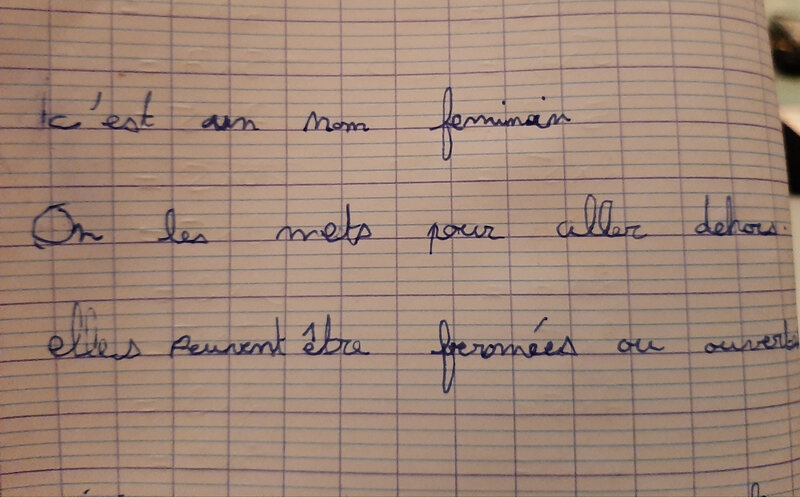 c'est un nom feminain
On les mets pour aller dehors.
elles peuvent être feromées ou